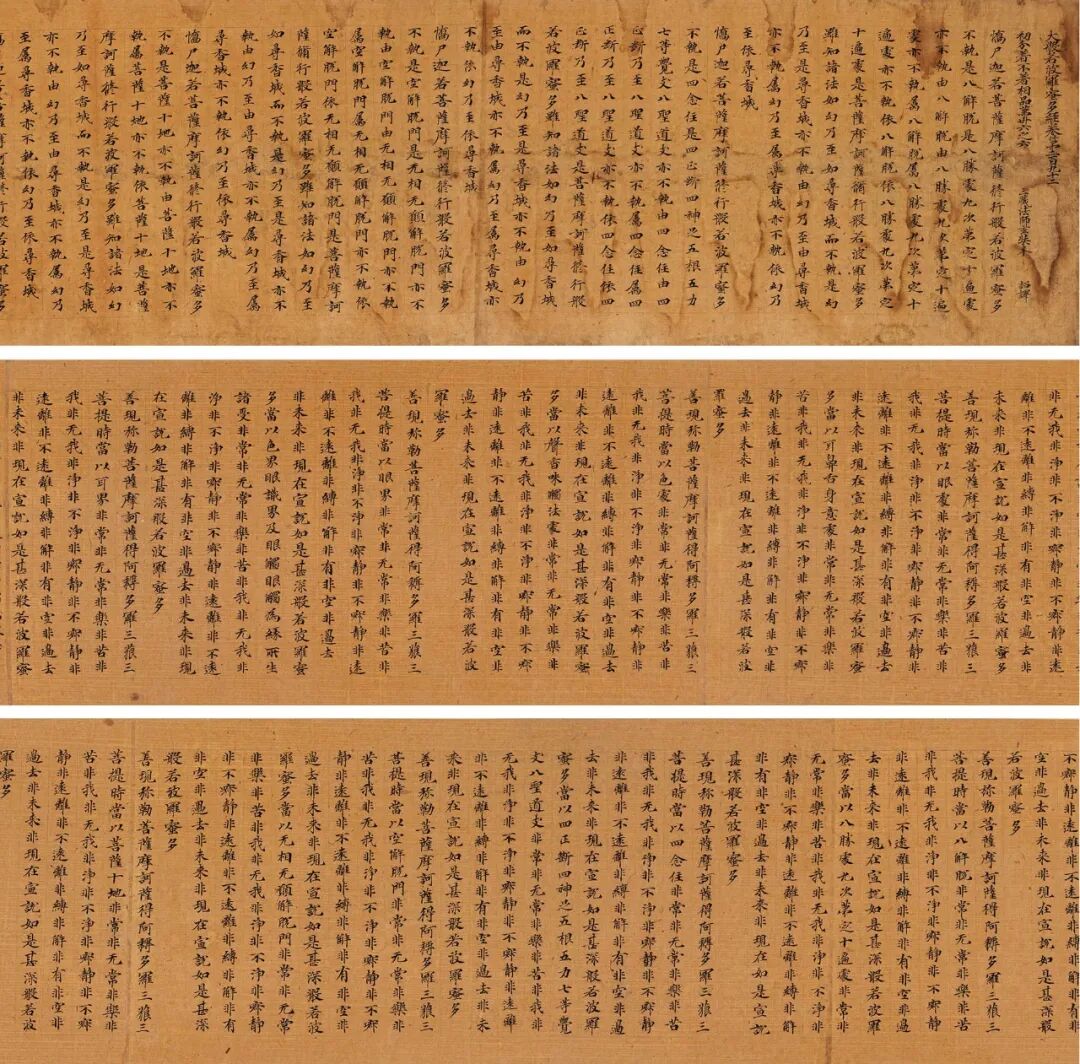 大般若波羅蜜多經卷第二百九十二
初分著不著相品第卅六之六 三藏法師玄奘奉 詔譯
憍尸迦若菩薩摩訶薩修行般若波羅蜜多
不執是八解脫是八勝處九次第定十遍處
亦不執由八解脫由八勝處九次第定十遍
處亦不執屬八解脫屬八勝處九次第定十
遍處亦不執依八解脫依八勝處九次第定
十遍處是菩薩摩訶薩能行般若波羅蜜多
雖知諸法如幻乃至如尋香城而不執是幻
乃至是尋香城亦不執由幻乃至由尋香城
亦不執屬幻乃至屬尋香城亦不執依幻乃
至依尋香城
憍尸迦若菩薩摩訶薩修行般若波羅蜜多
不執是四念住是四正斷四神足五根五力
七等覺支八聖道支亦不執由四念住由四
正斷乃至八聖道支亦不執屬四念住屬四
正斷乃至八聖道支亦不執依四念住依四
正斷乃至八聖道支是菩薩摩訶薩能行般
若波羅蜜多雖知諸法如幻乃至如尋香城
而不執是幻乃至是尋香城亦不執由幻乃
至由尋香城亦不執屬幻乃至屬尋香城亦
不執依幻乃至依尋香城
憍尸迦若菩薩摩訶薩修行般若波羅蜜多
不執是空解脫門是无相无願解脫門亦不
執由空解脫門由无相无願解脫門亦不執
屬空解脫門屬无相无願解脫門亦不執依
空解脫門依无相无願解脫門是菩薩摩訶
薩能行般若波羅蜜多雖知諸法如幻乃至
如尋香城而不執是幻乃至是尋香城亦不
執由幻乃至由尋香城亦不執屬幻乃至屬
尋香城亦不執依幻乃至依尋香城
憍尸迦若菩薩摩訶薩修行般若波羅蜜多
不執是菩薩十地亦不執由菩薩十地亦不
執屬菩薩十地亦不執依菩薩十地是菩薩
摩訶薩修行般若波羅蜜多雖知諸法如幻
乃至如尋香城而不執是幻乃至是尋香城
亦不執由幻乃至由尋香城亦不執屬幻乃
至屬尋香城亦不執依幻乃至依尋香城
憍尸迦若菩薩摩訶薩修行般若波羅蜜多
非无我非淨非不淨非寂靜非不寂靜非遠
離非不遠離非縛非解非有非空非過去非
未來非現在宣說如是甚深般若波羅蜜多
善現弥勒菩薩摩訶薩得阿耨多羅三藐三
菩提時當以眼處非常非无常非樂非苦非
我非无我非淨非不淨非寂靜非不寂靜非
遠離非不遠離非縛非解非有非空非過去
非未來非現在宣說如是甚深般若波羅蜜
多當以耳鼻舌身意處非常非无常非樂非
苦非我非无我非淨非不淨非寂靜非不寂
靜非遠離非不遠離非縛非解非有非空非
過去非未來非現在宣說如是甚深般若波
羅蜜多
善現弥勒菩薩摩訶薩得阿耨多羅三藐三
菩提時當以色處非常非无常非樂非苦非
我非无我非淨非不淨非寂靜非不寂靜非
遠離非不遠離非縛非解非有非空非過去
非未來非現在宣說如是甚深般若波羅蜜
多當以聲香味觸法處非常非无常非樂非
苦非我非无我非淨非不淨非寂靜非不寂
靜非遠離非不遠離非縛非解非有非空非
過去非未來非現在宣說如是甚深般若波
羅蜜多
善現弥勒菩薩摩訶薩得阿耨多羅三藐三
菩提時當以眼界非常非无常非樂非苦非
我非无我非淨非不淨非寂靜非不寂靜非遠
離非不遠離非縛非解非有非空非過去
非未來非現在宣說如是甚深般若波羅蜜
多當以色界眼識界及眼觸眼觸為緣所生
諸受非常非无常非樂非苦非我非无我非
淨非不淨非寂靜非不寂靜非遠離非不遠
離非縛非解非有非空非過去非未來非現
在宣說如是甚深般若波羅蜜多
善現弥勒菩薩摩訶薩得阿耨多羅三藐三
菩提時當以耳界非常非无常非樂非苦非
我非无我非淨非不淨非寂靜非不寂靜非
遠離非不遠離非縛非解非有非空非過去
非未來非現在宣說如是甚深般若波羅蜜
不寂靜非遠離非不遠離非縛非解非有非
空非過去非未來非現在宣說如是甚深般
若波羅蜜多
善現弥勒菩薩摩訶薩得阿耨多羅三藐三
菩提時當以八解脫非常非无常非樂非苦
非我非无我非淨非不淨非寂靜非不寂靜
非遠離非不遠離非縛非解非有非空非過
去非未來非現在宣說如是甚深般若波羅
蜜多當以八勝處九次第定十遍處非常非
无常非樂非苦非我非无我非淨非不淨非
寂靜非不寂靜非遠離非不遠離非縛非解
非有非空非過去非未來非現在如是宣說
甚深般若波羅蜜多
善現弥勒菩薩摩訶薩得阿耨多羅三藐三
菩提時當以四念住非常非无常非樂非苦
非我非无我非淨非不淨非寂靜非不寂靜
非遠離非不遠離非縛非解非有非空非過
去非未來非現在宣說如是甚深般若波羅
蜜多當以四正斷四神足五根五力七等覺
支八聖道支非常非无常非樂非苦非我非
无我非淨非不淨非寂靜非不寂靜非遠離
非不遠離非縛非解非有非空非過去非未
來非現在宣說如是甚深般若波羅蜜多
善現弥勒菩薩摩訶薩得阿耨多羅三藐三
菩提時當以空解脫門非常非无常非樂非
苦非我非无我非淨非不淨非寂靜非不寂
靜非遠離非不遠離非縛非解非有非空非
過去非未來非現在宣說如是甚深般若波
羅蜜多當以无相无願解脫門非常非无常
非樂非苦非我非无我非淨非不淨非寂靜
非不寂靜非遠離非不遠離非縛非解非有
非空非過去非未來非現在宣說如是甚深
般若波羅蜜多
善現弥勒菩薩摩訶薩得阿耨多羅三藐三
菩提時當以菩薩十地非常非无常非樂非
苦非我非无我非淨非不淨非寂靜非不寂
靜非遠離非不遠離非縛非解非有非空非
過去非未來非現在宣說如是甚深般若波
羅蜜多